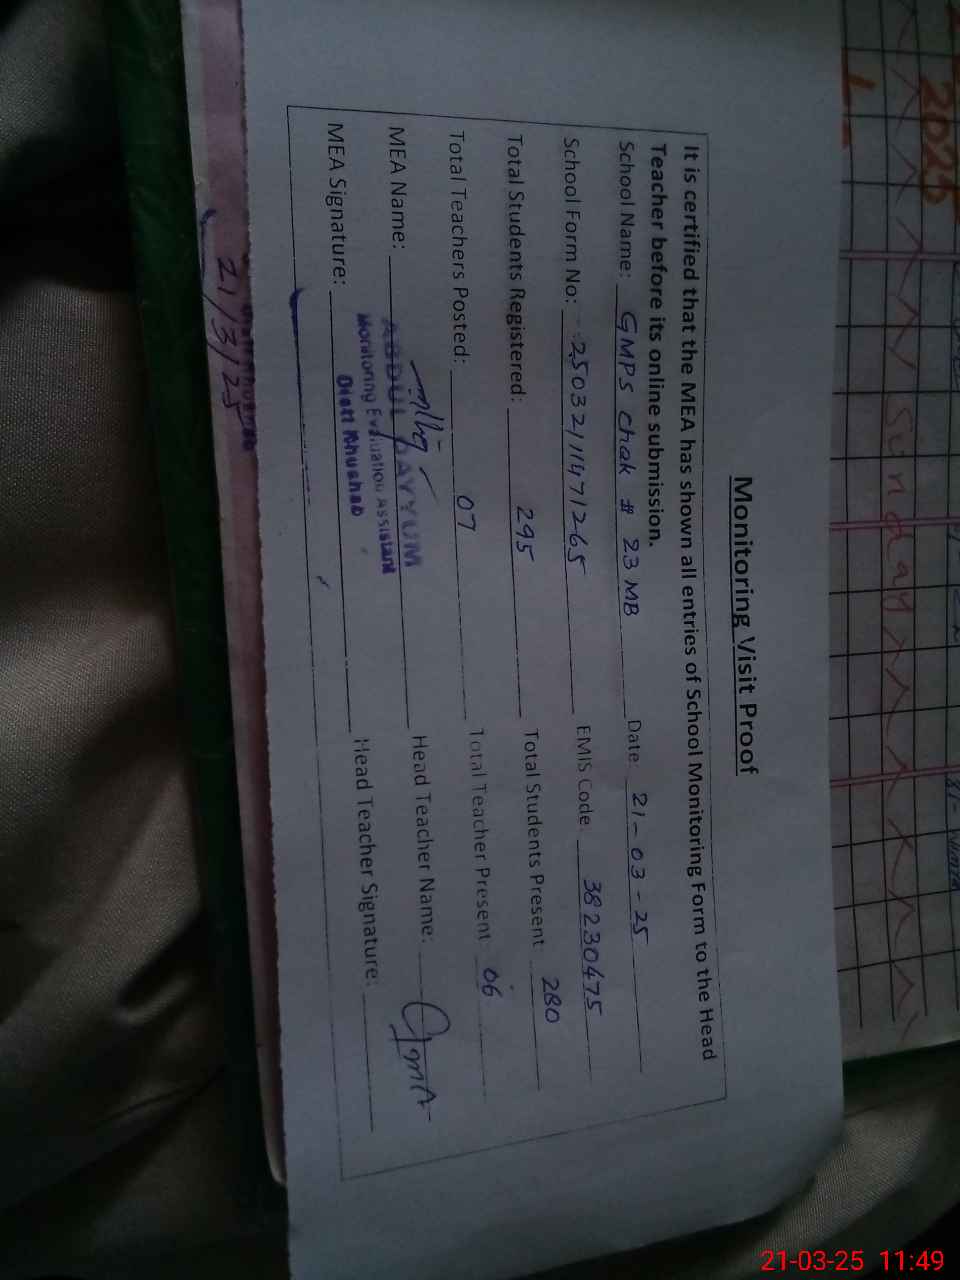 Monitoring Visit Proof
It is certified that the MEA has shown all entries of School Monitoring Form to the Head
Teacher before its online submission.
School Name: GMPS Chak # 23 MB Date: 21-03-25
School Form No: 25032111471265 EMIS Code: 38230475
Total Students Registered: 295 Total Students Present 280
Total Teachers Posted: 07 Total Teacher Present 06
MEA Name: ABDUL QAYYUM Head Teacher Name:
Monitoring Evaluation Assistant
Distt Khushab
MEA Signature: Head Teacher Signature:
21/3/25
2025
Sunday
21-03-25 11:49